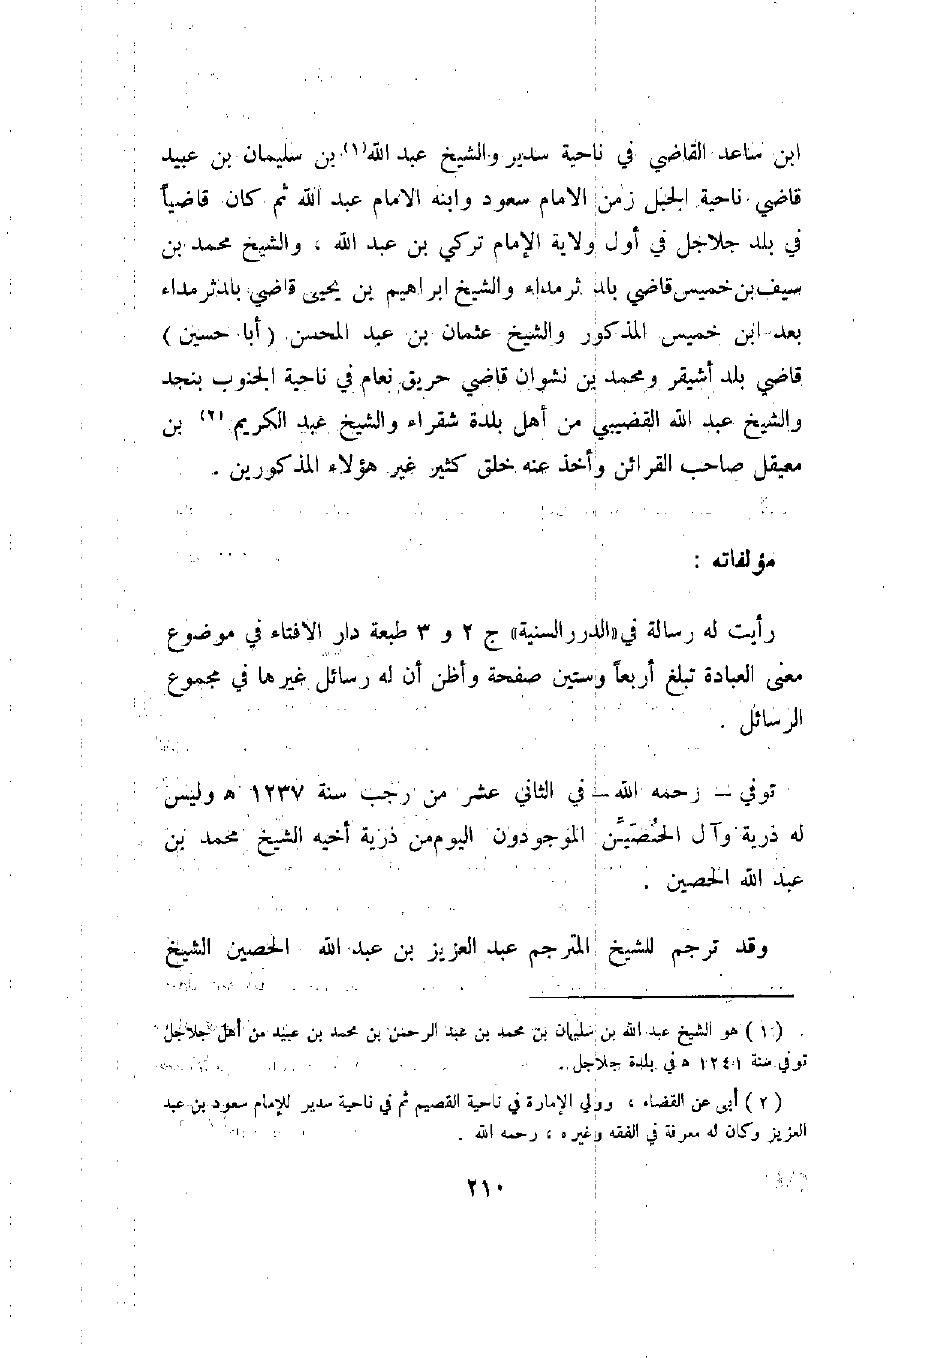 ابن ساعد القاضي في ناحية سدير والشيخ عبد الله(١) بن سليمان بن عبيد
قاضي ناحية الجبل زمن الامام سعود وابنه الامام عبد الله ثم كان قاضياً
في بلد جلاجل في أول ولاية الإمام تركي بن عبد الله ، والشيخ محمد بن
سيف بن خميس قاضي بلد ثرمداء والشيخ ابراهيم بن يحيى قاضي بلد ثرمداء
بعد ابن خميس المذكور والشيخ عثمان بن عبد المحسن ( أبا حسين )
قاضي بلد أشيقر ومحمد بن نشوان قاضي حريق نعام في ناحية الجنوب بنجد
والشيخ عبد الله القضيبي من أهل بلدة شقراء والشيخ عبد الكريم (٢) بن
معيقل صاحب القرائن وأخذ عنه خلق كثير غير هؤلاء المذكورين .
مؤلفاته :
رأيت له رسالة في «الدرر السنية» ج ٢ و ٣ طبعة دار الافتاء في موضوع
معنى العبادة تبلغ أربعاً وستين صفحة وأظن أن له رسائل غيرها في مجموع
الرسائل .
توفي – رحمه الله – في الثاني عشر من رجب سنة ١٢٣٧ ه وليس
له ذرية وآل الحُصَيِّن الموجودون اليوم من ذرية أخيه الشيخ محمد بن
عبد الله الحصين .
وقد ترجم للشيخ المترجم عبد العزيز بن عبد الله الحصين الشيخ
( ١ ) هو الشيخ عبد الله بن سليمان بن محمد بن عبد الرحمن بن محمد بن عبيد من أهل جلاجل
توفي سنة ١٢٤١ ه في بلدة جلاجل .
( ٢ ) أبى عن القضاء ، وولي الإمارة في ناحية القصيم ثم في ناحية سدير للإمام سعود بن عبد
العزيز وكان له معرفة في الفقه وغيره ، رحمه الله .
٢١٠